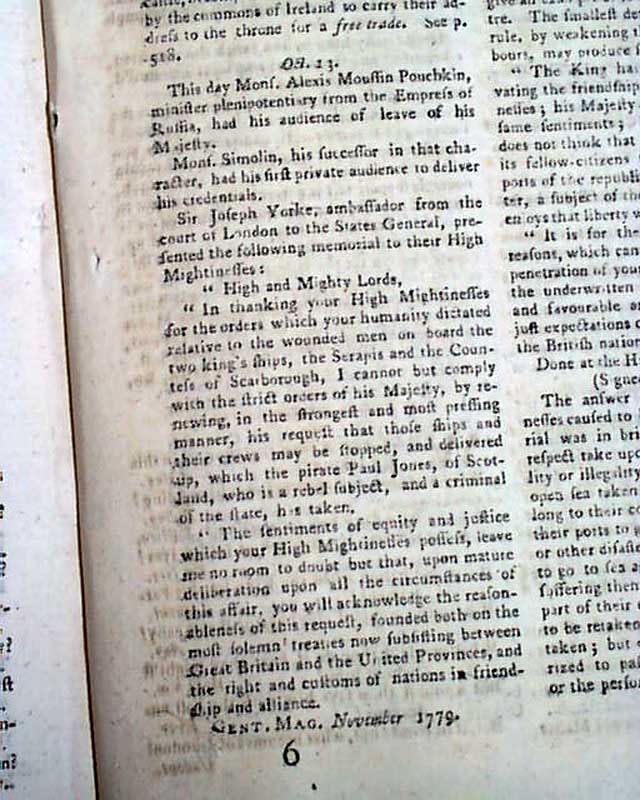 by the commons of Ireland to carry their ad-
dreſs to the throne for a free trade. See p.
518.
Oct. 13.
This day Monſ. Alexis Mouſſin Pouchkin,
miniſter plenipotentiary from the Empreſs of
Ruſſia, had his audience of leave of his
Majeſty.
Monſ. Simolin, his ſucceſſor in that cha-
racter, had his firſt private audience to deliver
his credentials.
Sir Joſeph Yorke, ambaſſador from the
court of London to the States General, pre-
ſented the following memorial to their High
Mightineſſes:
“ High and Mighty Lords,
“ In thanking your High Mightineſſes
for the orders which your humanity dictated
relative to the wounded men on board the
two king's ſhips, the Serapis and the Coun-
teſs of Scarborough, I cannot but comply
with the ſtrict orders of his Majeſty, by re-
newing, in the ſtrongeſt and moſt preſſing
manner, his requeſt that thoſe ſhips and
their crews may be ſtopped, and delivered
up, which the pirate Paul Jones, of Scot-
land, who is a rebel ſubject, and a criminal
of the ſtate, has taken.
“ The ſentiments of equity and juſtice
which your High Mightineſſes poſſeſs, leave
me no room to doubt but that, upon mature
deliberation upon all the circumſtances of
this affair, you will acknowledge the reaſon-
ableneſs of this requeſt, founded both on the
moſt ſolemn treaties now ſubſiſting between
Great Britain and the United Provinces, and
the right and cuſtoms of nations in friend-
ſhip and alliance.
GENT. MAG. November 1779.
6
tre. The ſmalleſt
rule, by weakening
bours, may produce
“ The King
vating the friendſhip
neſſes; his Majeſty
ſame ſentiments;
does not think that
its fellow-citizens
ports of the
ter, a ſubject of
enjoys that liberty
“ It is for
reaſons, which
penetration of
the underwritten
and favourable
juſt expectations
the Britiſh nation
Done at the
(Signed
The anſwer
neſſes cauſed to
rial was in
reſpect take
lity or
open ſea taken
long to their
their ports to
or other
to go to ſea
ſuffering them
part of their
to be retaken
taken; but
rized to
or the